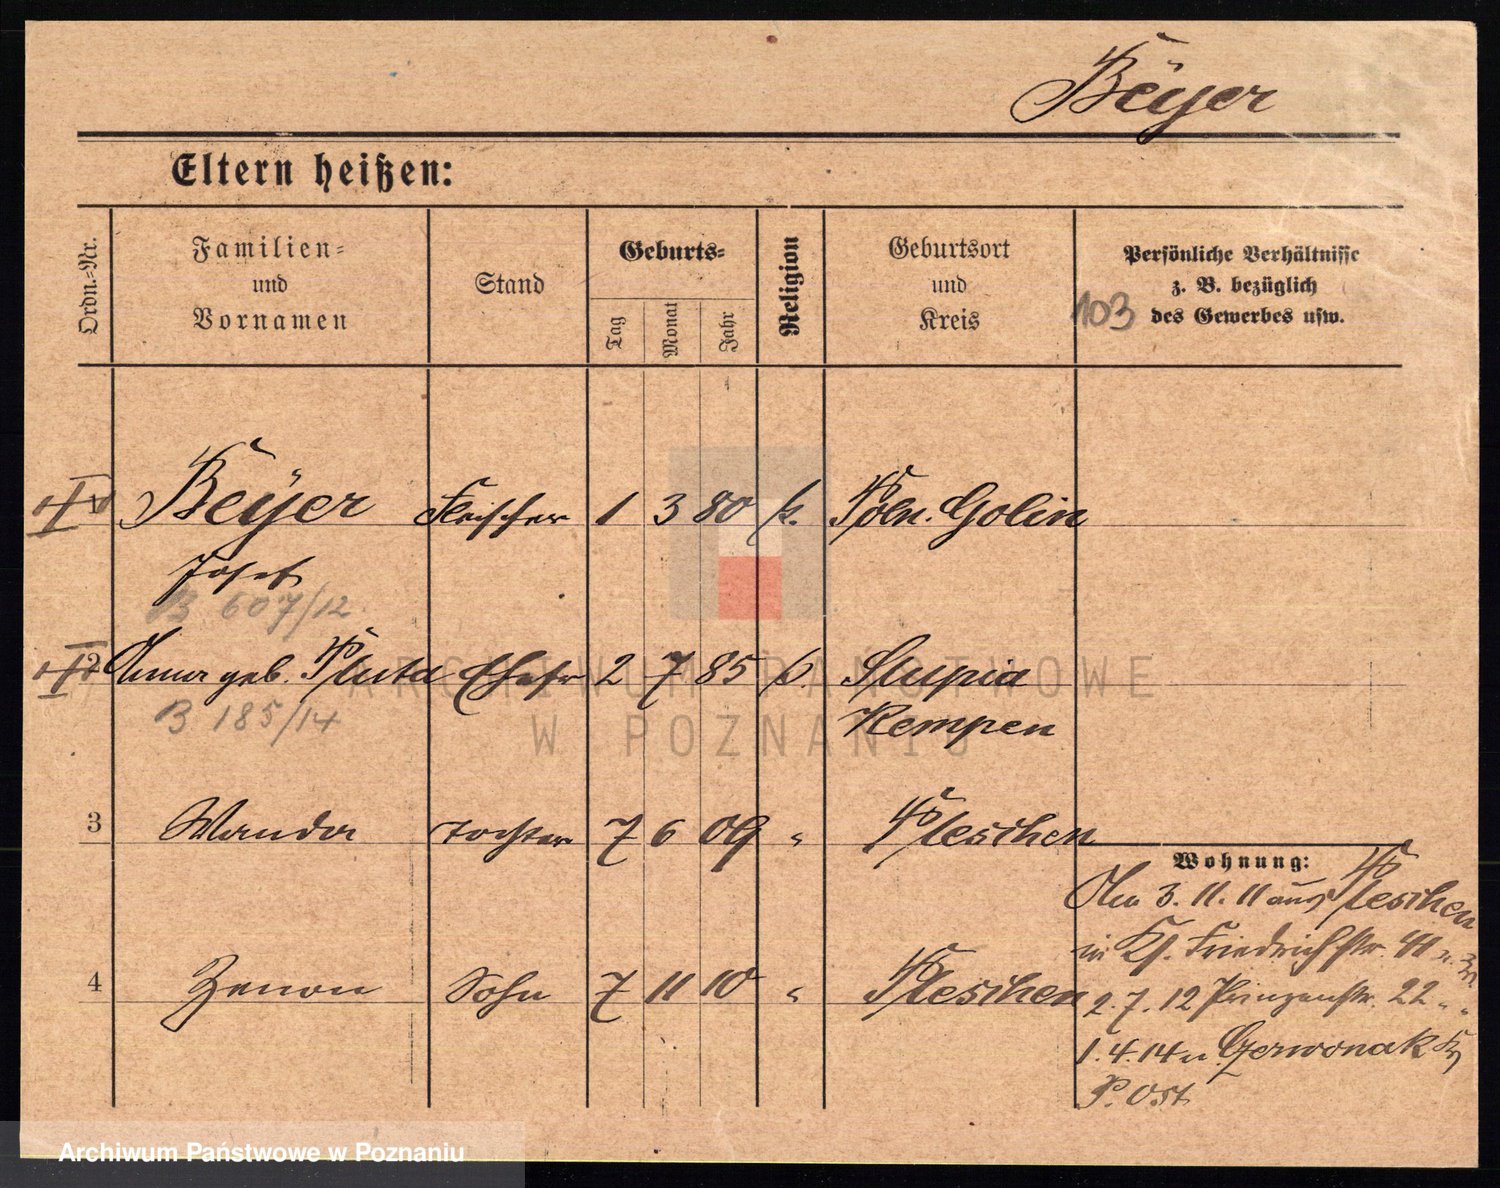 Beÿer
Eltern heißen:
Ordn.-Nr.
Familien- und Vornamen
Stand
Geburts-
Tag
Monat
Jahr
Religion
Geburtsort und Kreis
103
Persönliche Verhältnisse z. B. bezüglich des Gewerbes usw.
Beÿer Fleischer 1 3 80 k. Poln. Golin
Josef
B 607/12
2 Anna geb. Pluta Ehefr 2 7 85 k Slupia
Kempen
B 185/14
3 Wanda Tochter 7 6 09 " Pleschen
4 Zenon Sohn 7 11 10 " Pleschen
Wohnung:
Am 3. 11. 11 aus Pleschen
in Kf. Friedrichstr. 41
2. 7. 12 Prinzenstr. 22 " "
1. 4. 14 n. Czerwonak
P. Ost
ARCHIWUM PAŃSTWOWE
W POZNANIU
Archiwum Państwowe w Poznaniu